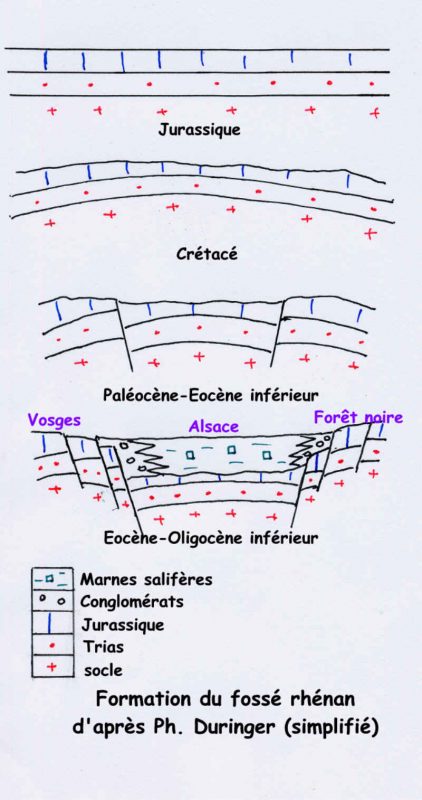 Jurassique
Crétacé
Paléocène-Eocène inférieur
Vosges
Alsace
Forêt noire
Eocène-Oligocène inférieur
Marnes salifères
Conglomérats
Jurassique
Trias
socle
Formation du fossé rhénan
d'après Ph. Duringer (simplifié)